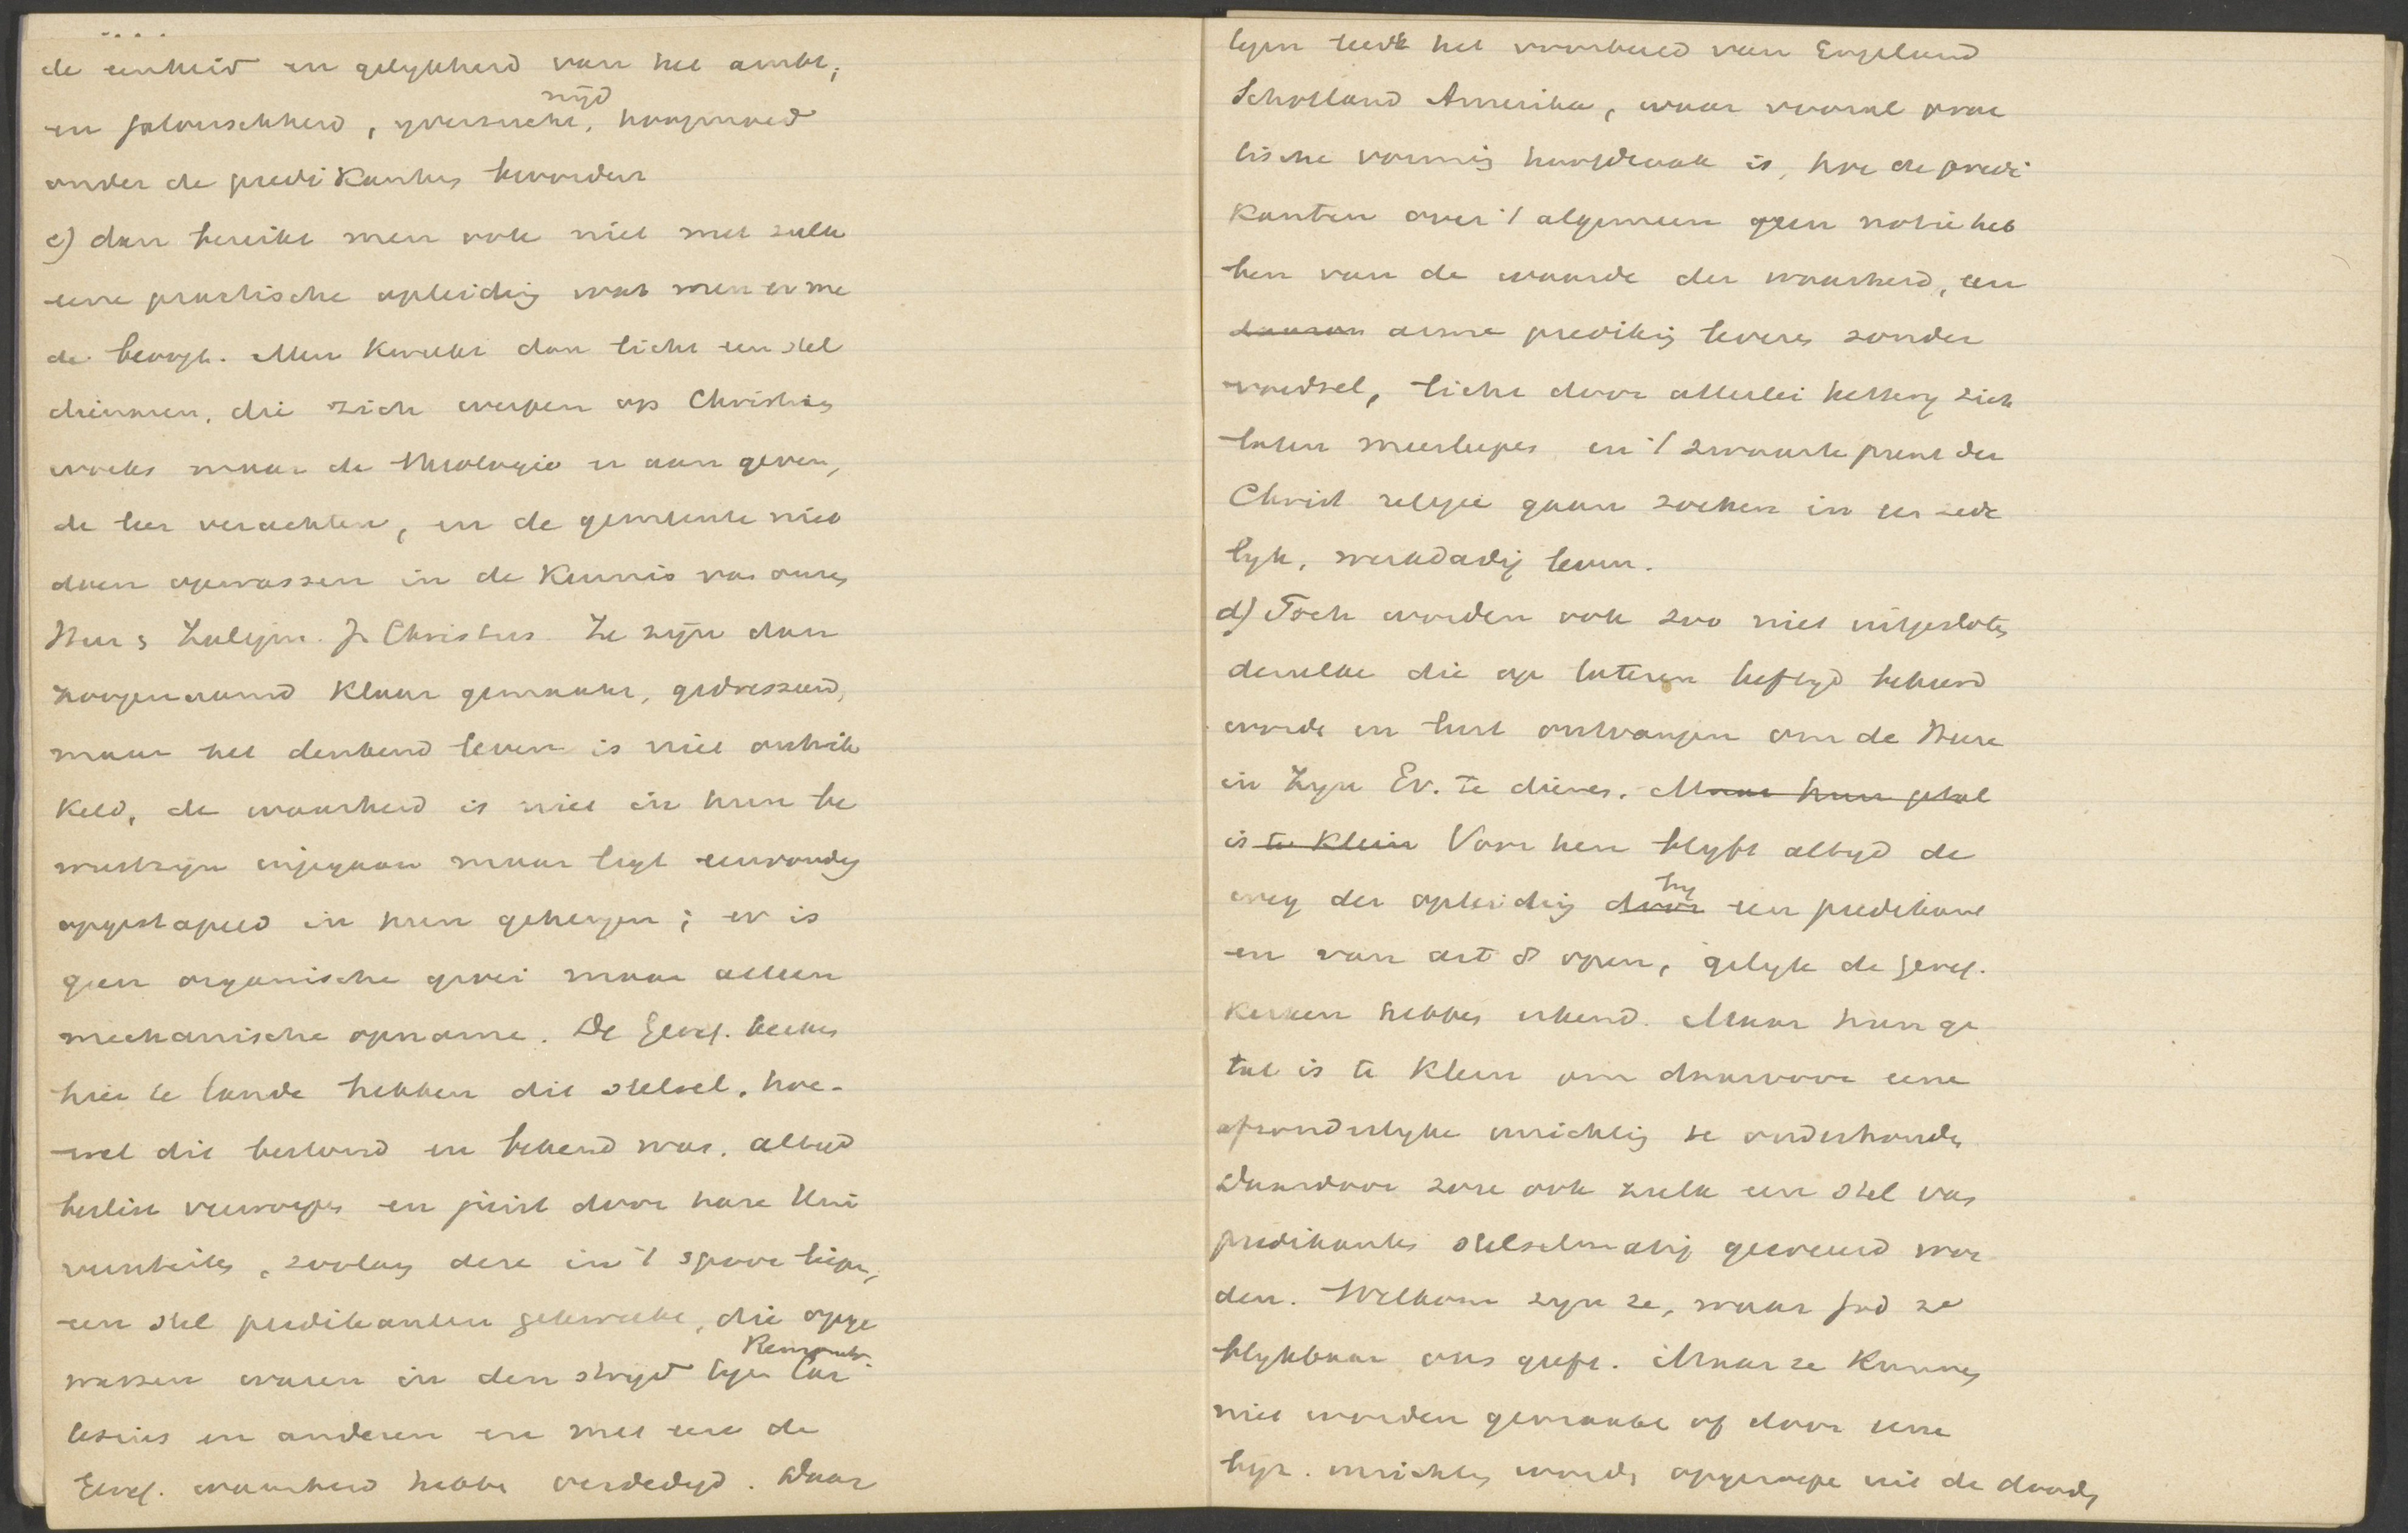 de eenheid en gelykheid van het ambt;
en jalouschheid, yverzucht, nijd hoogmoed
onder de predikanten bevorderen
c) dan bereikt men ook niet met zulk
eene practische opleiding wat men er me
de beoogt. Men kweekt dan licht een stel
drijvers, die zich werpen op Christelijke
werks maar de theologie er aan geven,
de leer verachten, en de gemeente niet
doen opwassen in de kennis van onzes
Heer s Zaligm. J. Christus. Ze zijn dan
zoogenaamd klaar gemaakt, gedresseerd,
maar het denkend leven is niet ontwik
keld, de waarheid is niet in hun be
wustzijn ingegaan maar ligt eenvoudig
opgestapeld in hun geheugen; er is
geen organische groei maar alleen
mechanische opname. De Geref. kerken
hier te lande hebben dit stelsel, hoe-
wel dit bestond en bekend was, altijd
beslist verworpen en juist door hare Uni
versiteiten, zoolang deze in 't spoor liepen,
een stel predikanten gekweekt, die opge
wassen waren in den strijd tegen Remonstr. Car
tesius en anderen en met eere de
Geref. waarheid hebben verdedigd. Daar
tegen leert het voorbeeld van Engeland
Schotland Amerika, waar vooral prac
tische vorming hoofdzaak is, hoe de predi
kanten over 't algemeen geen notie heb
ben van de waarde der waarheid, een
daarom arme prediking leveren zonder
voedsel, licht door allerlei ketterij zich
laten meesleepen en 't zwaartepunt der
Christ religie gaan zoeken in een zede
lyk, werkdadig leven.
d) Toch worden ook zoo niet uitgesloten
denzulke die op lateren leeftyd bekeerd
worde en lust ontvangen om de Heere
in Zyn Ev. te dienen. Maar hun getal
is te klein Voor hen blyft altyd de
weg der opleiding door by een predikant
en van art 8 open, gelyk de Geref.
kerken hebben erkend. Maar hun ge
tal is te klein om daarvoor eene
afzonderlyke inrichting te onderhouden
Daardoor zou ook zulk een stel van
predikanten stelselmatig gekweekt wor
den. Welkom zyn ze, waar God ze
blykbaar ons geeft. Maar ze kunnen
niet worden gemaakt of door eene
byz. inrichting worden opgeroepen uit de dooden